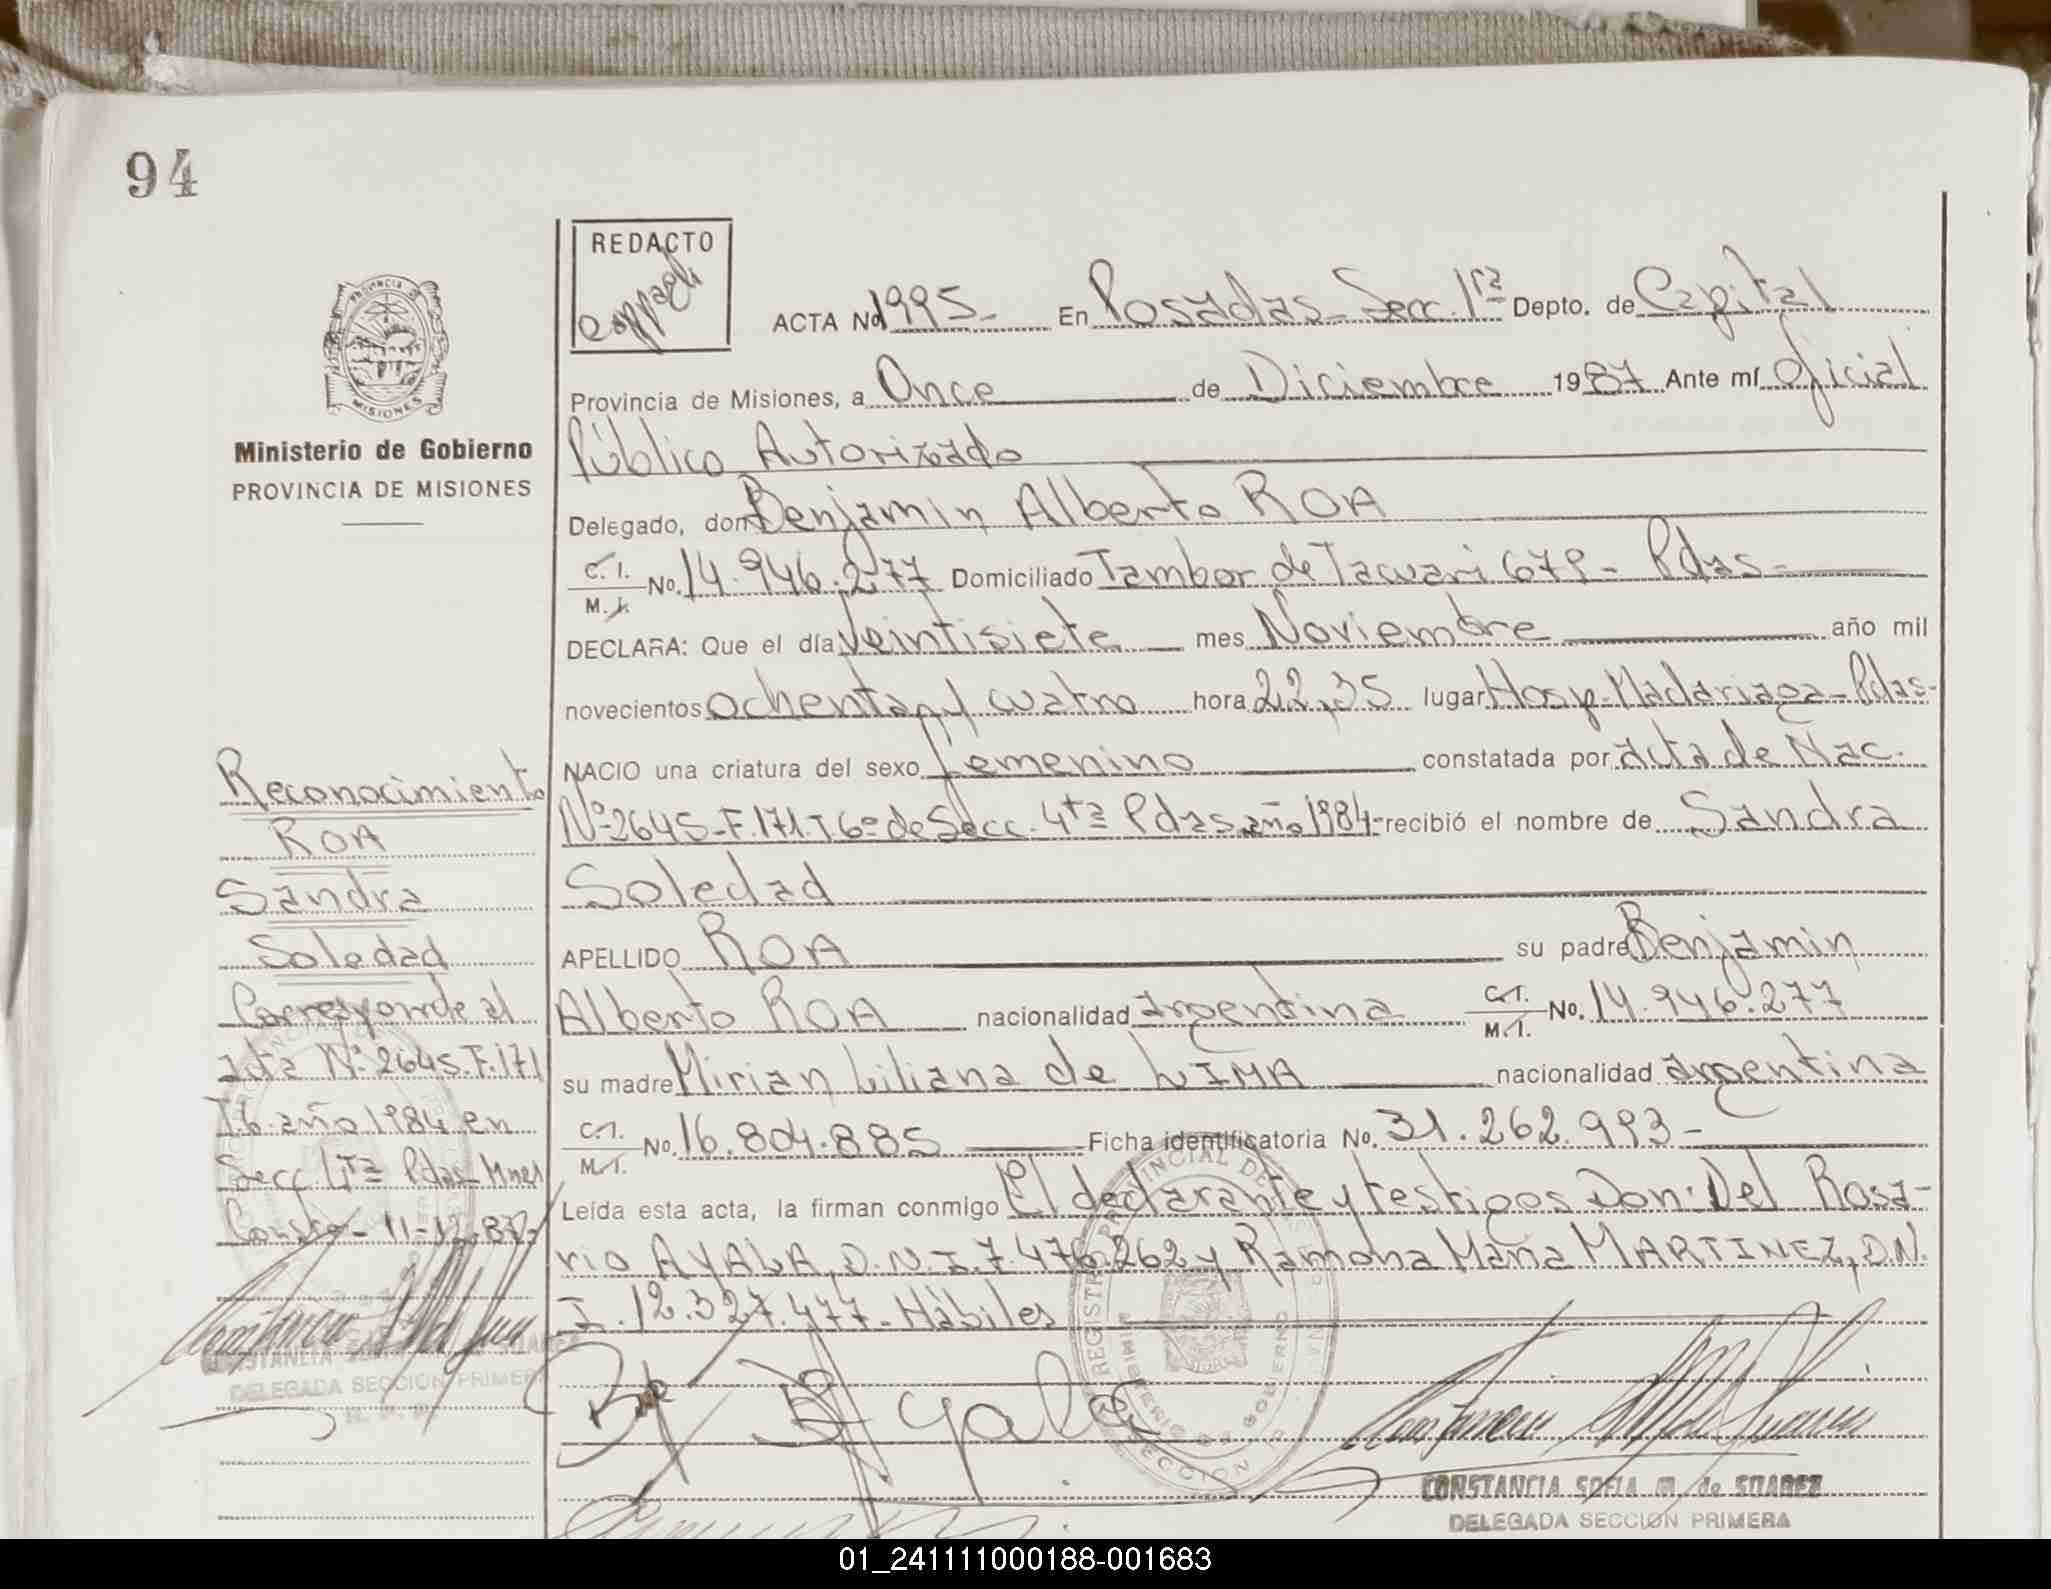 94
REDACTO
ACTA No 1995- En Posadas- Secc. 1ra Depto. de Capital
Provincia de Misiones, a Once de Diciembre 1987 Ante mí Oficial
Público Autorizado
Delegado, don Benjamin Alberto ROA
C. I. No. 14.946.277 Domiciliado Tambor de Tacuari 679- Pdas-
M. I.
DECLARA: Que el día Veintisiete mes Noviembre año mil
novecientos ochenta y cuatro hora 22,35 lugar Hosp. Madariaga- Pdas-
NACIO una criatura del sexo femenino constatada por acta de Nac.
Nº 2645-F.171.T6º de Secc. 4ta Pdas año 1984- recibió el nombre de Sandra
Soledad
APELLIDO ROA su padre Benjamin
Alberto ROA nacionalidad argentina C.I. No. 14.946.277
M.I.
su madre Mirian Liliana de LIMA nacionalidad argentina
C.I. No. 16.804.885 Ficha identificatoria No. 31.262.993-
M.I.
Leída esta acta, la firman conmigo El declarante y testigos Don: Del Rosa-
rio AYALA, D.N.I. 7.476.262 y Ramona Maria MARTINEZ, D.N.
I. 12.327.477- Hábiles
CONSTANCIA SOFIA M. de SUAREZ
DELEGADA SECCION PRIMERA
PROVINCIA DE
MISIONES
Ministerio de Gobierno
PROVINCIA DE MISIONES
Reconocimiento
ROA
Sandra
Soledad
Corresponde al
acta Nº 2645.F.171
T.6. año 1984 en
Secc. 4ta Pdas Mnes
Conste- 11-12-87-
DELEGADA SECCION PRIMERA
01_241111000188-001683